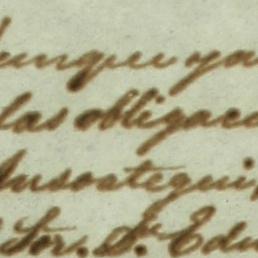 unque ya
las obligac
Ansoategui,
Sor. Dn. Edu